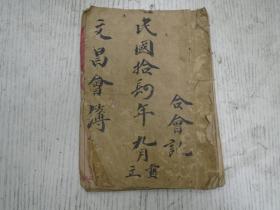 合會記
民國拾肆年九月重立
文昌會簿